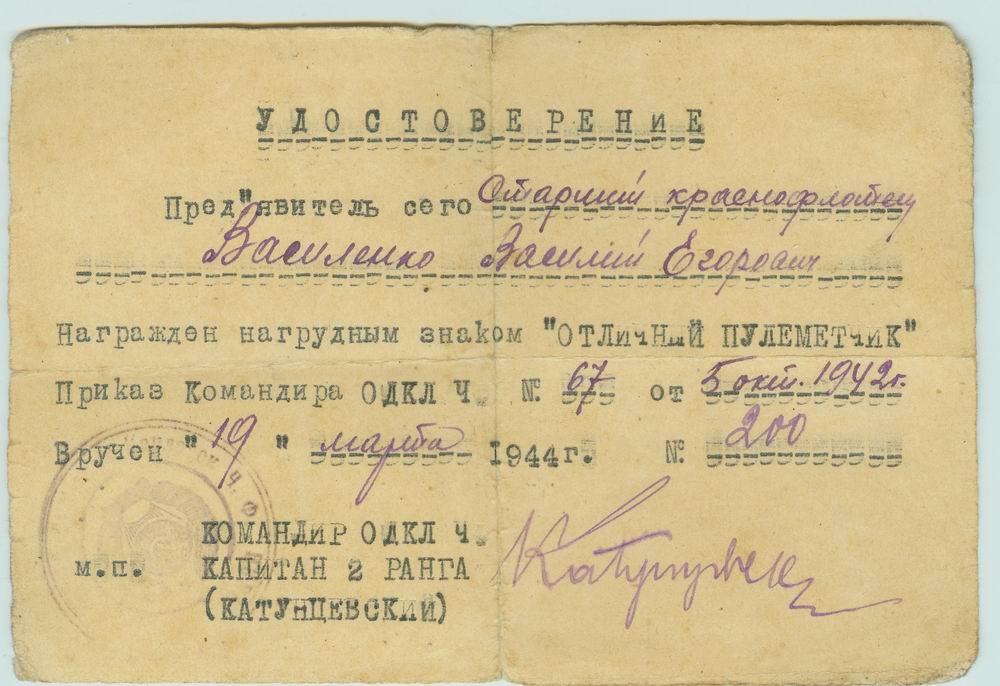 УДОСТОВЕРЕНИЕ
Пред"явитель сего Старший краснофлотец
Василенко Василий Егорович
Награжден нагрудным знаком "ОТЛИЧНЫЙ ПУЛЕМЕТЧИК"
Приказ Командира ОДКЛ Ч. № 67 от 5 окт. 1942г.
Вручен "19" марта 1944г. № 200
КОМАНДИР ОДКЛ Ч.
м.п. КАПИТАН 2 РАНГА
(КАТУНЦЕВСКИЙ)